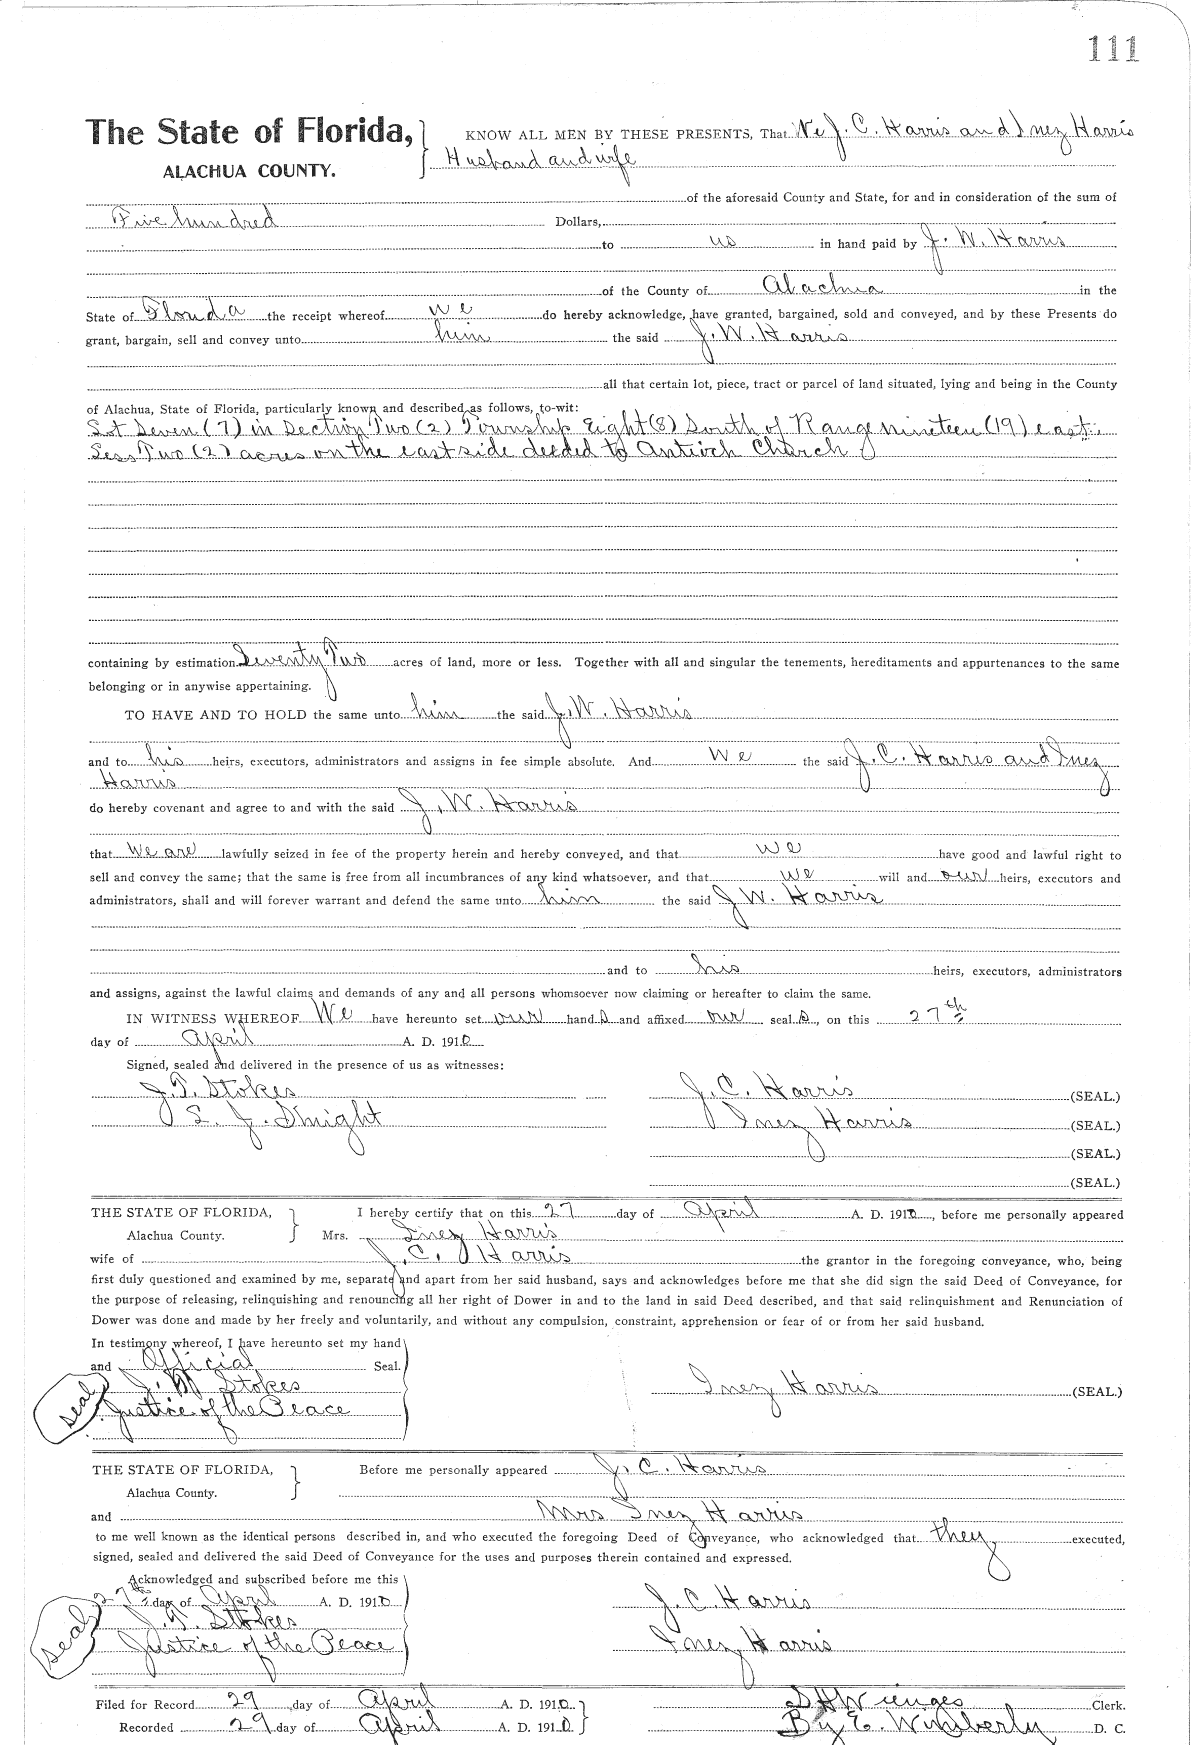 111
The State of Florida, KNOW ALL MEN BY THESE PRESENTS, That We J. C. Harris and Inez Harris
ALACHUA COUNTY. Husband and wife
of the aforesaid County and State, for and in consideration of the sum of
Five hundred Dollars,
to us in hand paid by J. W. Harris
of the County of Alachua in the
State of Florida the receipt whereof we do hereby acknowledge, have granted, bargained, sold and conveyed, and by these Presents do
grant, bargain, sell and convey unto him the said J. W. Harris
all that certain lot, piece, tract or parcel of land situated, lying and being in the County
of Alachua, State of Florida, particularly known and described as follows, to-wit:
Lot Seven (7) in Section Two (2) Township Eight (8) South of Range nineteen (19) east.
Less Two (2) acres on the east side deeded to Antioch Church
containing by estimation Seventy Two acres of land, more or less. Together with all and singular the tenements, hereditaments and appurtenances to the same
belonging or in anywise appertaining.
TO HAVE AND TO HOLD the same unto him the said J. W. Harris
and to his heirs, executors, administrators and assigns in fee simple absolute. And We the said J. C. Harris and Inez
Harris
do hereby covenant and agree to and with the said J. W. Harris
that we are lawfully seized in fee of the property herein and hereby conveyed, and that we have good and lawful right to
sell and convey the same; that the same is free from all incumbrances of any kind whatsoever, and that we will and our heirs, executors and
administrators, shall and will forever warrant and defend the same unto him the said J W. Harris
and to his heirs, executors, administrators
and assigns, against the lawful claims and demands of any and all persons whomsoever now claiming or hereafter to claim the same.
IN WITNESS WHEREOF We have hereunto set our hands and affixed our seals, on this 27th
day of April A. D. 1910
Signed, sealed and delivered in the presence of us as witnesses:
J. T. Stokes J. C. Harris (SEAL.)
S. J. Dhight Inez Harris (SEAL.)
(SEAL.)
(SEAL.)
THE STATE OF FLORIDA, I hereby certify that on this 27 day of April A. D. 1910, before me personally appeared
Alachua County. Mrs. Inez Harris
wife of J. C. Harris the grantor in the foregoing conveyance, who, being
first duly questioned and examined by me, separate and apart from her said husband, says and acknowledges before me that she did sign the said Deed of Conveyance, for
the purpose of releasing, relinquishing and renouncing all her right of Dower in and to the land in said Deed described, and that said relinquishment and Renunciation of
Dower was done and made by her freely and voluntarily, and without any compulsion, constraint, apprehension or fear of or from her said husband.
In testimony whereof, I have hereunto set my hand
and Official Seal.
seal J. Stokes Inez Harris (SEAL.)
Justice of the Peace
THE STATE OF FLORIDA, Before me personally appeared J. C. Harris
Alachua County.
and Mrs Inez Harris
to me well known as the identical persons described in, and who executed the foregoing Deed of Conveyance, who acknowledged that they executed,
signed, sealed and delivered the said Deed of Conveyance for the uses and purposes therein contained and expressed.
Acknowledged and subscribed before me this
27th day of April A. D. 1910 J. C. Harris
J. T. Stokes
seal Justice of the Peace Inez Harris
Filed for Record 29 day of April A. D. 1910 S H Wienges Clerk.
Recorded 29 day of April A. D. 1910 By E. Wimberly D. C.